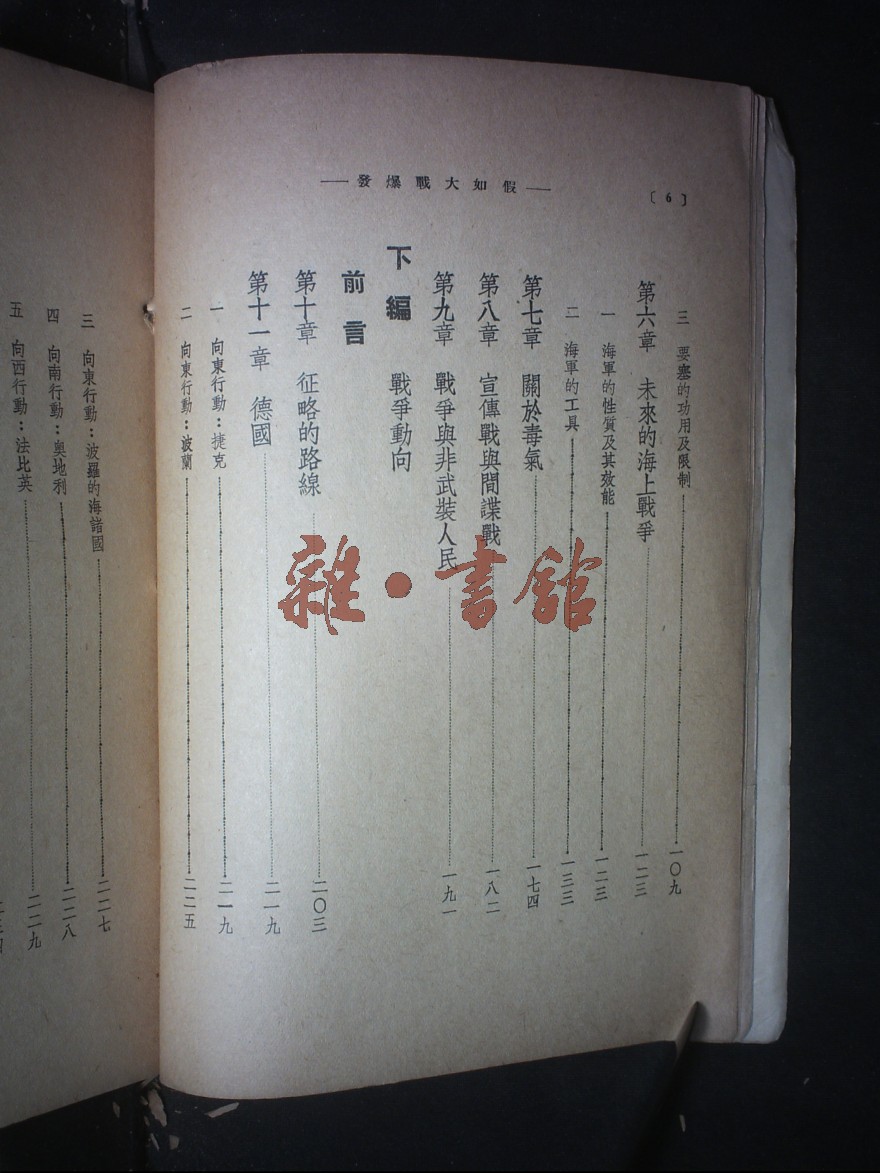 〔6〕
——假如大戰爆發——
三 要塞的功用及限制……一〇九
第六章 未來的海上戰爭……一二三
一 海軍的性質及其效能……一二三
二 海軍的工具……一三三
第七章 關於毒氣……一七四
第八章 宣傳戰與間諜戰……一八二
第九章 戰爭與非武裝人民……一九一
下編 戰爭動向
前言
第十章 征略的路線……二〇三
第十一章 德國……二一九
一 向東行動:捷克……二一九
二 向東行動:波蘭……二二五
三 向東行動:波羅的海諸國……二二七
四 向南行動:奧地利……二二八
五 向西行動:法比英……二二九
雜·書館